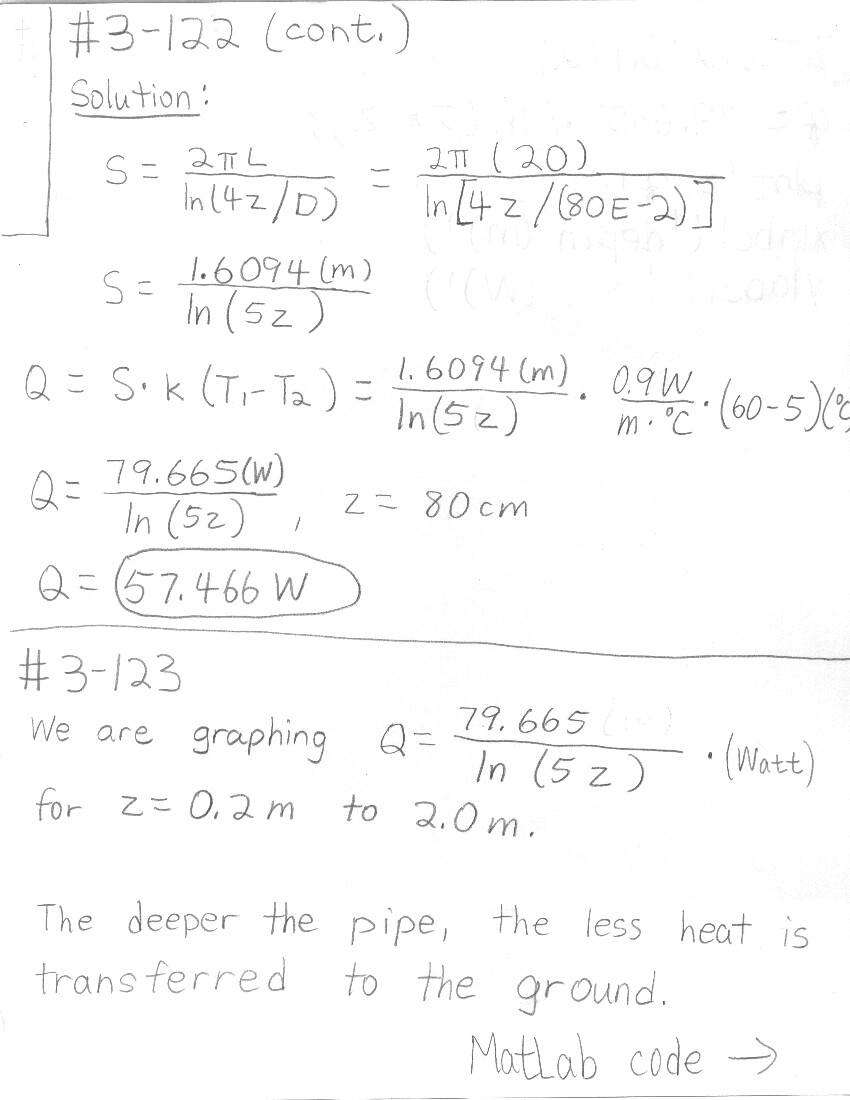 #3-122 (cont.)
Solution:
S = 2πL / ln(4z/D) = 2π(20) / ln[4z/(80E-2)]
S = 1.6094(m) / ln(5z)
Q = S·k(T₁-T₂) = 1.6094(m) / ln(5z) · 0.9W / m·°C · (60-5)(°C
Q = 79.665(W) / ln(5z) , z = 80cm
Q = 57.466 W
#3-123
We are graphing Q = 79.665 / ln(5z) · (Watt)
for z = 0.2m to 2.0m.
The deeper the pipe, the less heat is
transferred to the ground.
MatLab code →